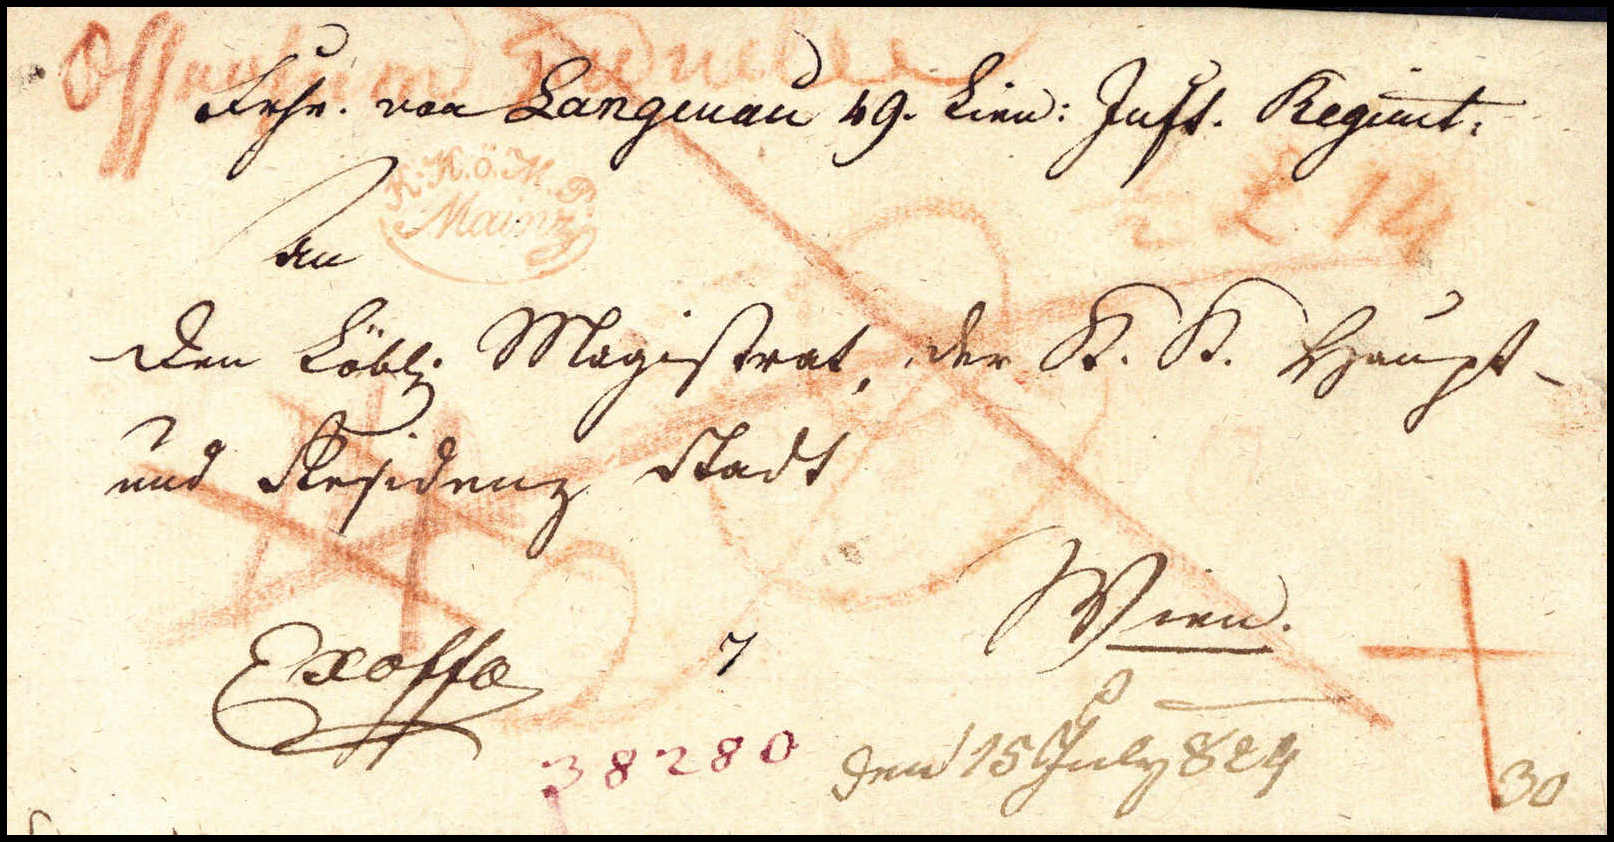 Frhr. von Langenau 49. Lien: Inft. Regimt:
K. K. Ö. M. P.
Mainz
An
Den Löbl: Magistrat, der K. K. Haupt-
und Residenz Stadt
Wien.
Exoffo
7
38280
den 15 July 824
30